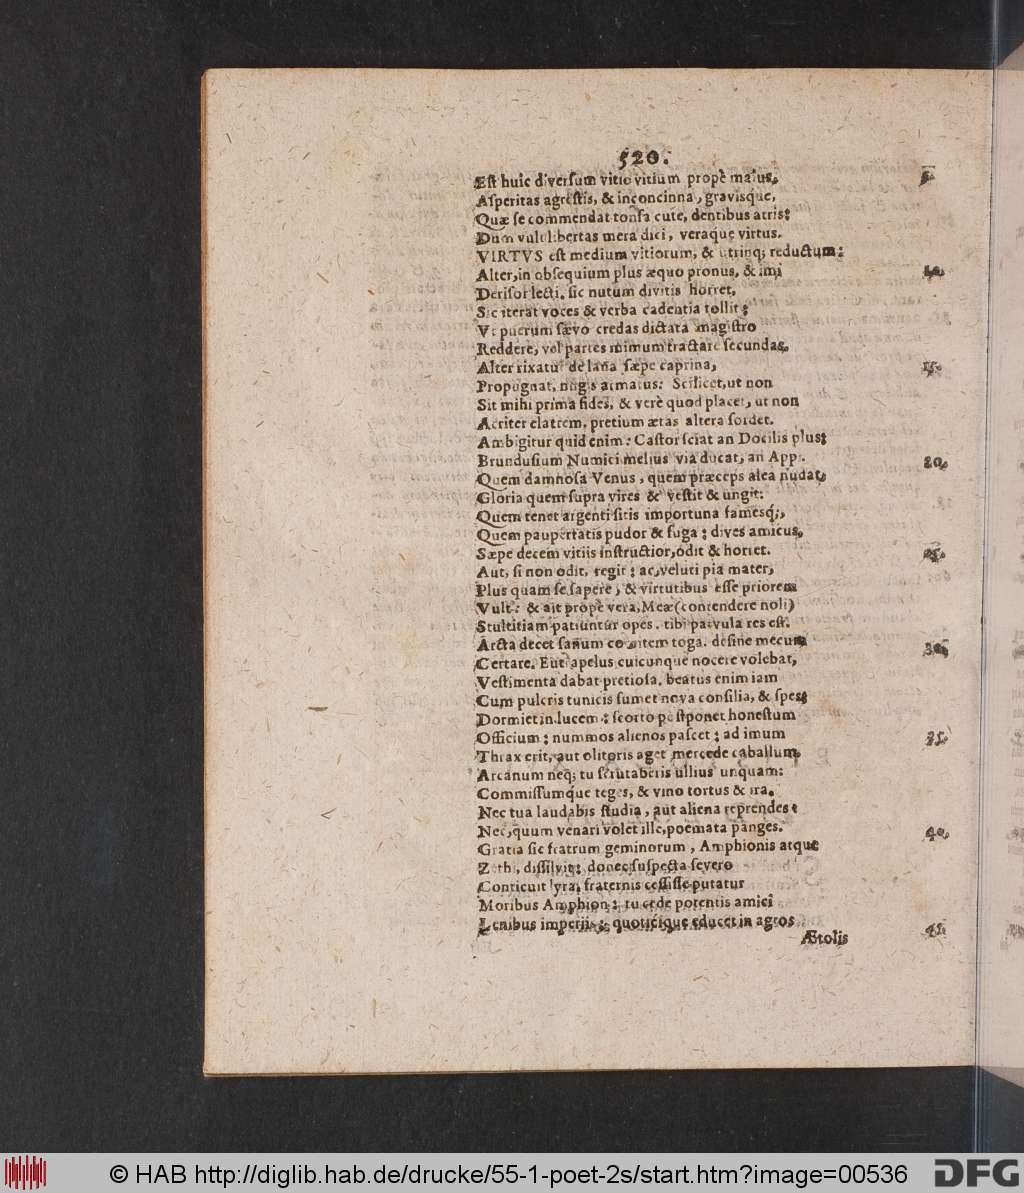 520.
Est huic diversum vitio vitium propè maius, 5.
Asperitas agrestis, & inconcinna, gravisque,
Quæ se commendat tonsa cute, dentibus atris:
Dum vult libertas mera dici, veraque virtus.
VIRTVS est medium vitiorum, & utrinq; reductum:
Alter, in obsequium plus æquo pronus, & imi 10.
Derisor lecti, sic nutum divitis horret,
Sic iterat voces & verba cadentia tollit:
Vt puerum sævo credas dictata magistro
Reddere, vel partes mimum tractare secundas.
Alter rixatur de lana sæpe caprina, 15.
Propugnat, nugis armatus: Scilicet, ut non
Sit mihi prima fides, & verè quod placet, ut non
Acriter elatrem, pretium ætas altera sordet.
Ambigitur quid enim: Castor sciat an Docilis plus:
Brundusium Numici melius via ducat, an Appi. 20.
Quem damnosa Venus, quem præceps alea nudat,
Gloria quem supra vires & vestit & ungit:
Quem tenet argenti sitis importuna famesq;,
Quem paupertatis pudor & fuga: dives amicus,
Sæpe decem vitiis instructior, odit & horret. 25.
Aut, si non odit, regit: ac, veluti pia mater,
Plus quam se sapere, & virtutibus esse priorem
Vult: & ait prope vera, Meæ (contendere noli)
Stultitiam patiuntur opes. tibi parvula res est.
Arcta decet sanum comitem toga. desine mecum 30.
Certare. Eutrapelus cuicunque nocere volebat,
Vestimenta dabat pretiosa. beatus enim iam
Cum pulcris tunicis sumet nova consilia, & spes:
Dormiet in lucem: scorto postponet honestum
Officium: nummos alienos pascet: ad imum 35.
Thrax erit, aut olitoris aget mercede caballum.
Arcanum neq; tu scrutaberis ullius unquam:
Commissumque teges, & vino tortus & ira.
Nec tua laudabis studia, aut aliena reprendes:
Nec, quum venari volet ille, poemata panges. 40.
Gratia sic fratrum geminorum, Amphionis atque
Zethi, dissilvit: donec suspecta severo
Conticuit lyra, fraternis cessisse putatur
Moribus Amphion: tu cede potentis amici
Lenibus imperiis: quotiesque educet in agros 45.
Ætolis
© HAB http://diglib.hab.de/drucke/55-1-poet-2s/start.htm?image=00536
DFG